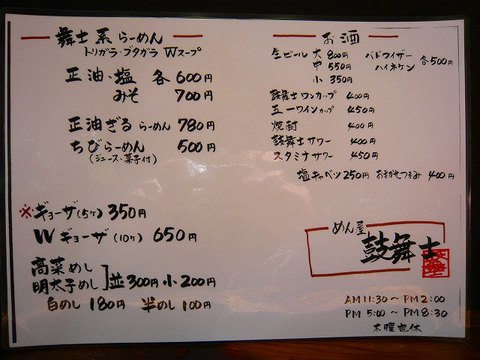 舞士系らーめん
トリガラ・ブタガラ Wスープ
正油・塩 各 600円
みそ 700円
正油ざる らーめん 780円
ちびらーめん 500円
(ジュース・菓子付)
※ギョーザ(5ヶ) 350円
W ギョーザ(10ヶ) 650円
高菜めし
明太子めし
並300円 小200円
白めし 180円 半めし 100円
お酒
生ビール 大 800円
中 550円
小 350円
バドワイザー
ハイネケン
各500円
鼓舞士ワンカップ 400円
五一ワインカップ 450円
焼酎 400円
鼓舞士サワー 400円
スタミナサワー 450円
塩キャベツ 250円 おまかせつまみ 400円
めん屋
鼓舞士
AM 11:30 〜 PM 2:00
PM 5:00 〜 PM 8:30
木曜定休